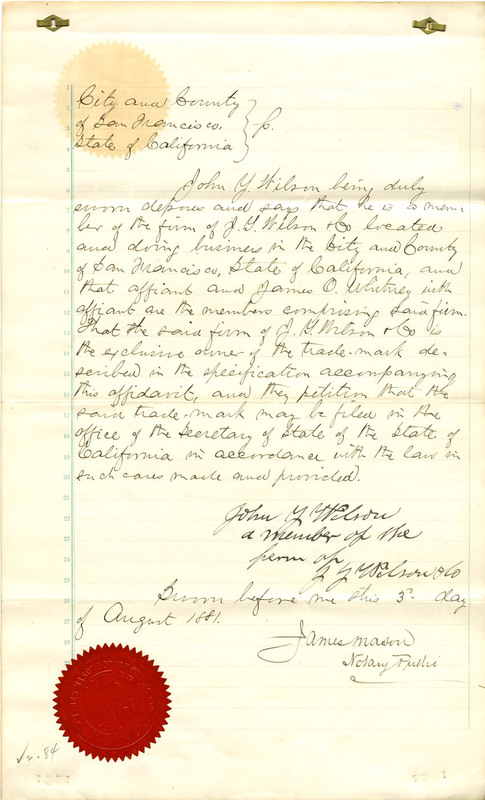 City and County
of San Francisco,
State of California
John Y. Wilson being duly
sworn deposes and says that he is a mem-
ber of the firm of J. Y. Wilson & Co located
and doing business in the City and County
of San Francisco, State of California, and
that affiant and James O. Whitney with
affiant are the members comprising said firm.
That the said firm of J. Y. Wilson & Co is
the exclusive owner of the trade-mark de-
scribed in the specification accompanying
this affidavit, and they petition that the
said trade-mark may be filed in the
office of the Secretary of State of the State of
California in accordance with the law in
such cases made and provided.
John Y Wilson
a member of the
firm of
J Y Wilson & Co
Sworn before me this 3d day
of August 1881.
James Mason
Notary Public